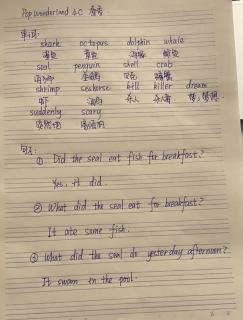 Pop Wonderland 4C
单词:
shark octopus dolphin whale
鲨鱼 章鱼 海豚 鲸鱼
seal penguin shell crab
海豹 企鹅 贝壳 螃蟹
shrimp seahorse kill killer dream
虾 海马 杀人 梦,梦想
suddenly scary
突然地
句子:
① Did the seal eat fish for breakfast?
Yes, it did.
② What did the seal eat for breakfast?
It ate some fish.
③ What did the seal do yesterday afternoon?
It swam in the pool.